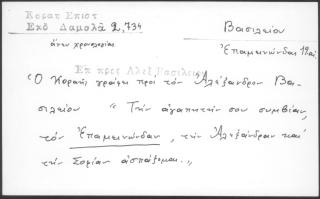 Κοραη Επιστ
Εκδ Δαμαλᾶ 2,734
ἄνευ χρονολογίας
Βασιλείου
Ἐπαμεινώνδας
Επ προς Αλεξ Βασιλειου
Ὁ Κοραῆς γράφει πρὸς τὸν Ἀλέξανδρον Βα-
σιλείου " Τὴν ἀγαπητήν σου συμβίαν,
τὸν Ἐπαμεινώνδαν, τὴν Ἀλεξάνδραν καὶ
τὴν Σοφίαν ἀσπάζομαι.,,